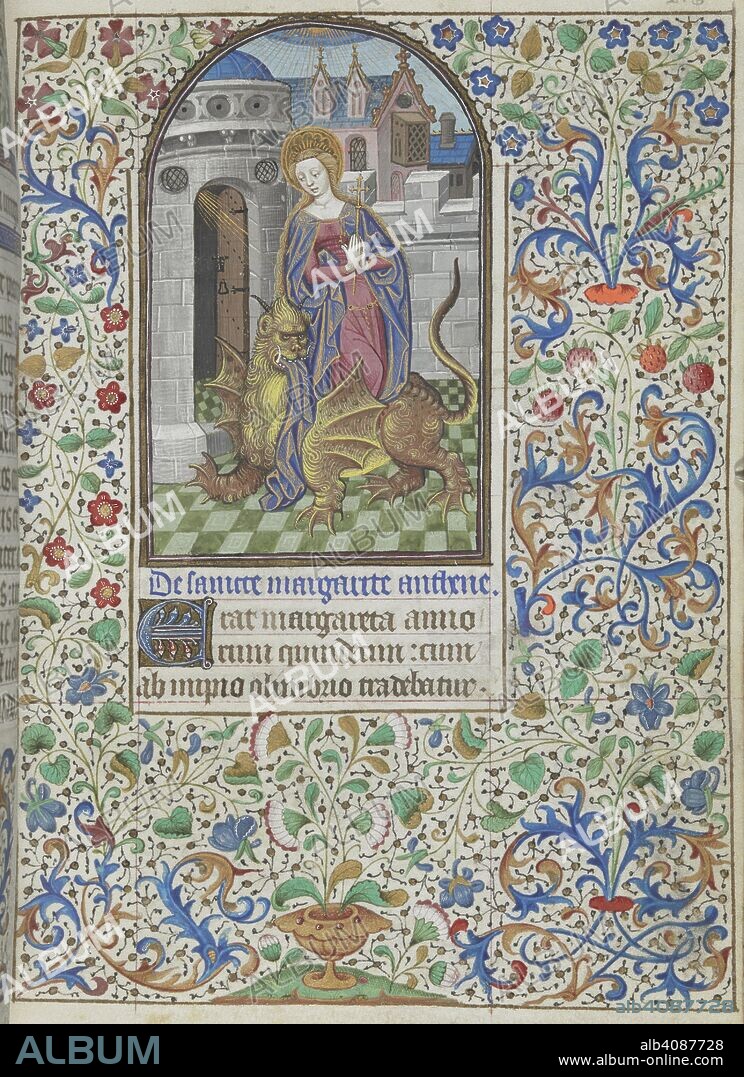 De saincte margarete
Erat margareta anno
rum quindecim : cum
ab impio olimbrio tradebatur.
ALBUM
alb4087728
ALBUM
alb4087728
www.album-online.com